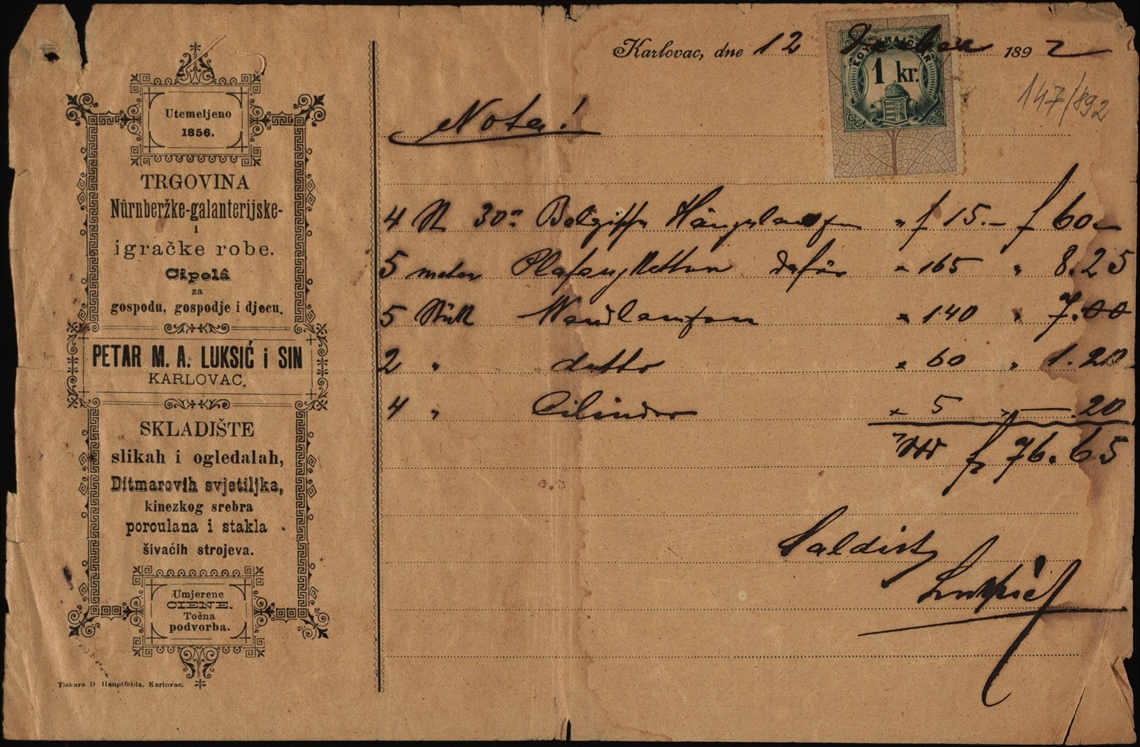 Utemeljeno
1856.
TRGOVINA
Nürnberžke-galanterijske-
i
igračke robe.
Cipelâ
za
gospodu, gospodje i djecu.
PETAR M. A. LUKSIĆ i SIN
KARLOVAC.
SKLADIŠTE
slikah i ogledalah,
Ditmarovih svjetiljka,
kinezkog srebra
porculana i stakla
šivaćih strojeva.
Umjerene
CIENE.
Točna
podvorba.
Tiskara D. Hauptfelda, Karlovac.
Karlovac, dne 12 1892
1 kr.
147/892
Nota!
4 St 30''' Hängelampen " f 15.– f 60–
5 meter dafür " 165 " 8.25
5 Stük Wandlampen " 140 " 7.00
2 " detto " 60 " 1.20
4 " Cilinder " 5 " — 20
f 76.65
Saldirt
Lukšić